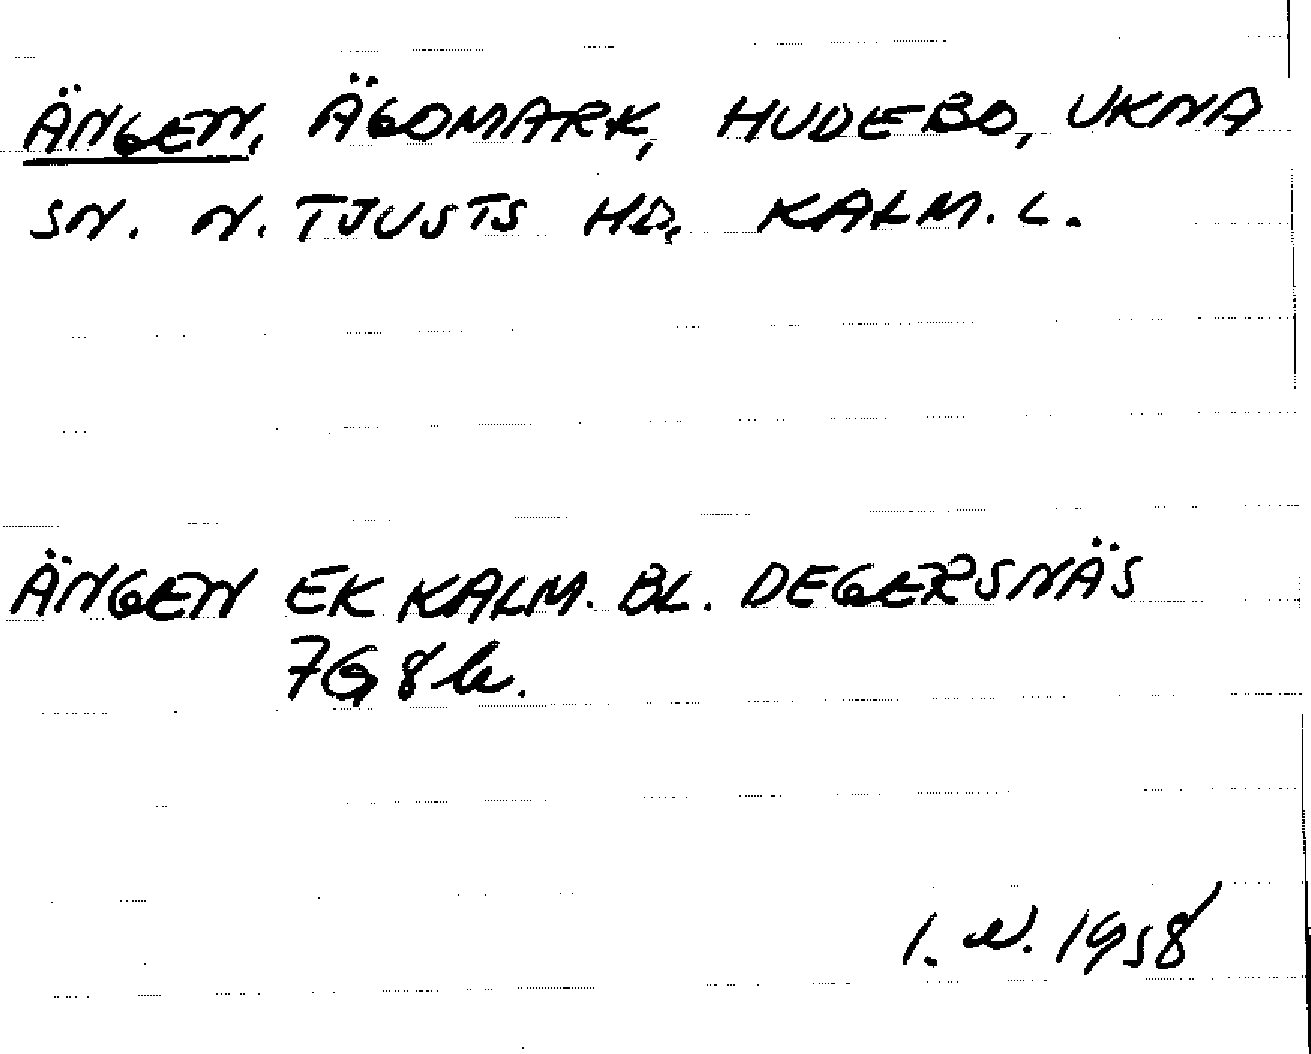 ÄNGEN, ÄGOMARK, HUDEBO, UKNA
SN. N. TJUSTS HD, KALM. L.
ÄNGEN EK KALM. BL. DEGERSNÄS
7G 8
1. N. 1958